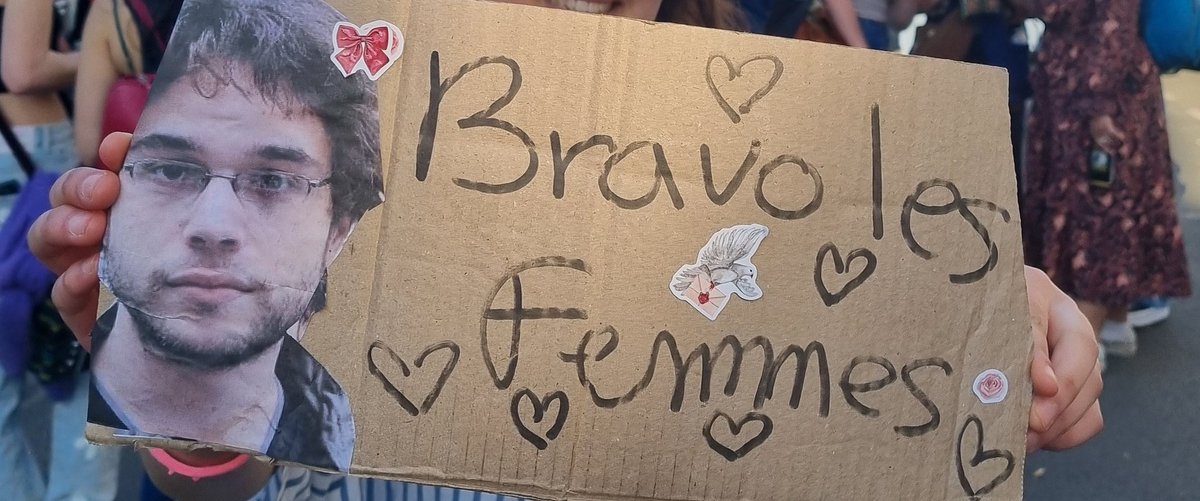 Bravo les
Femmes